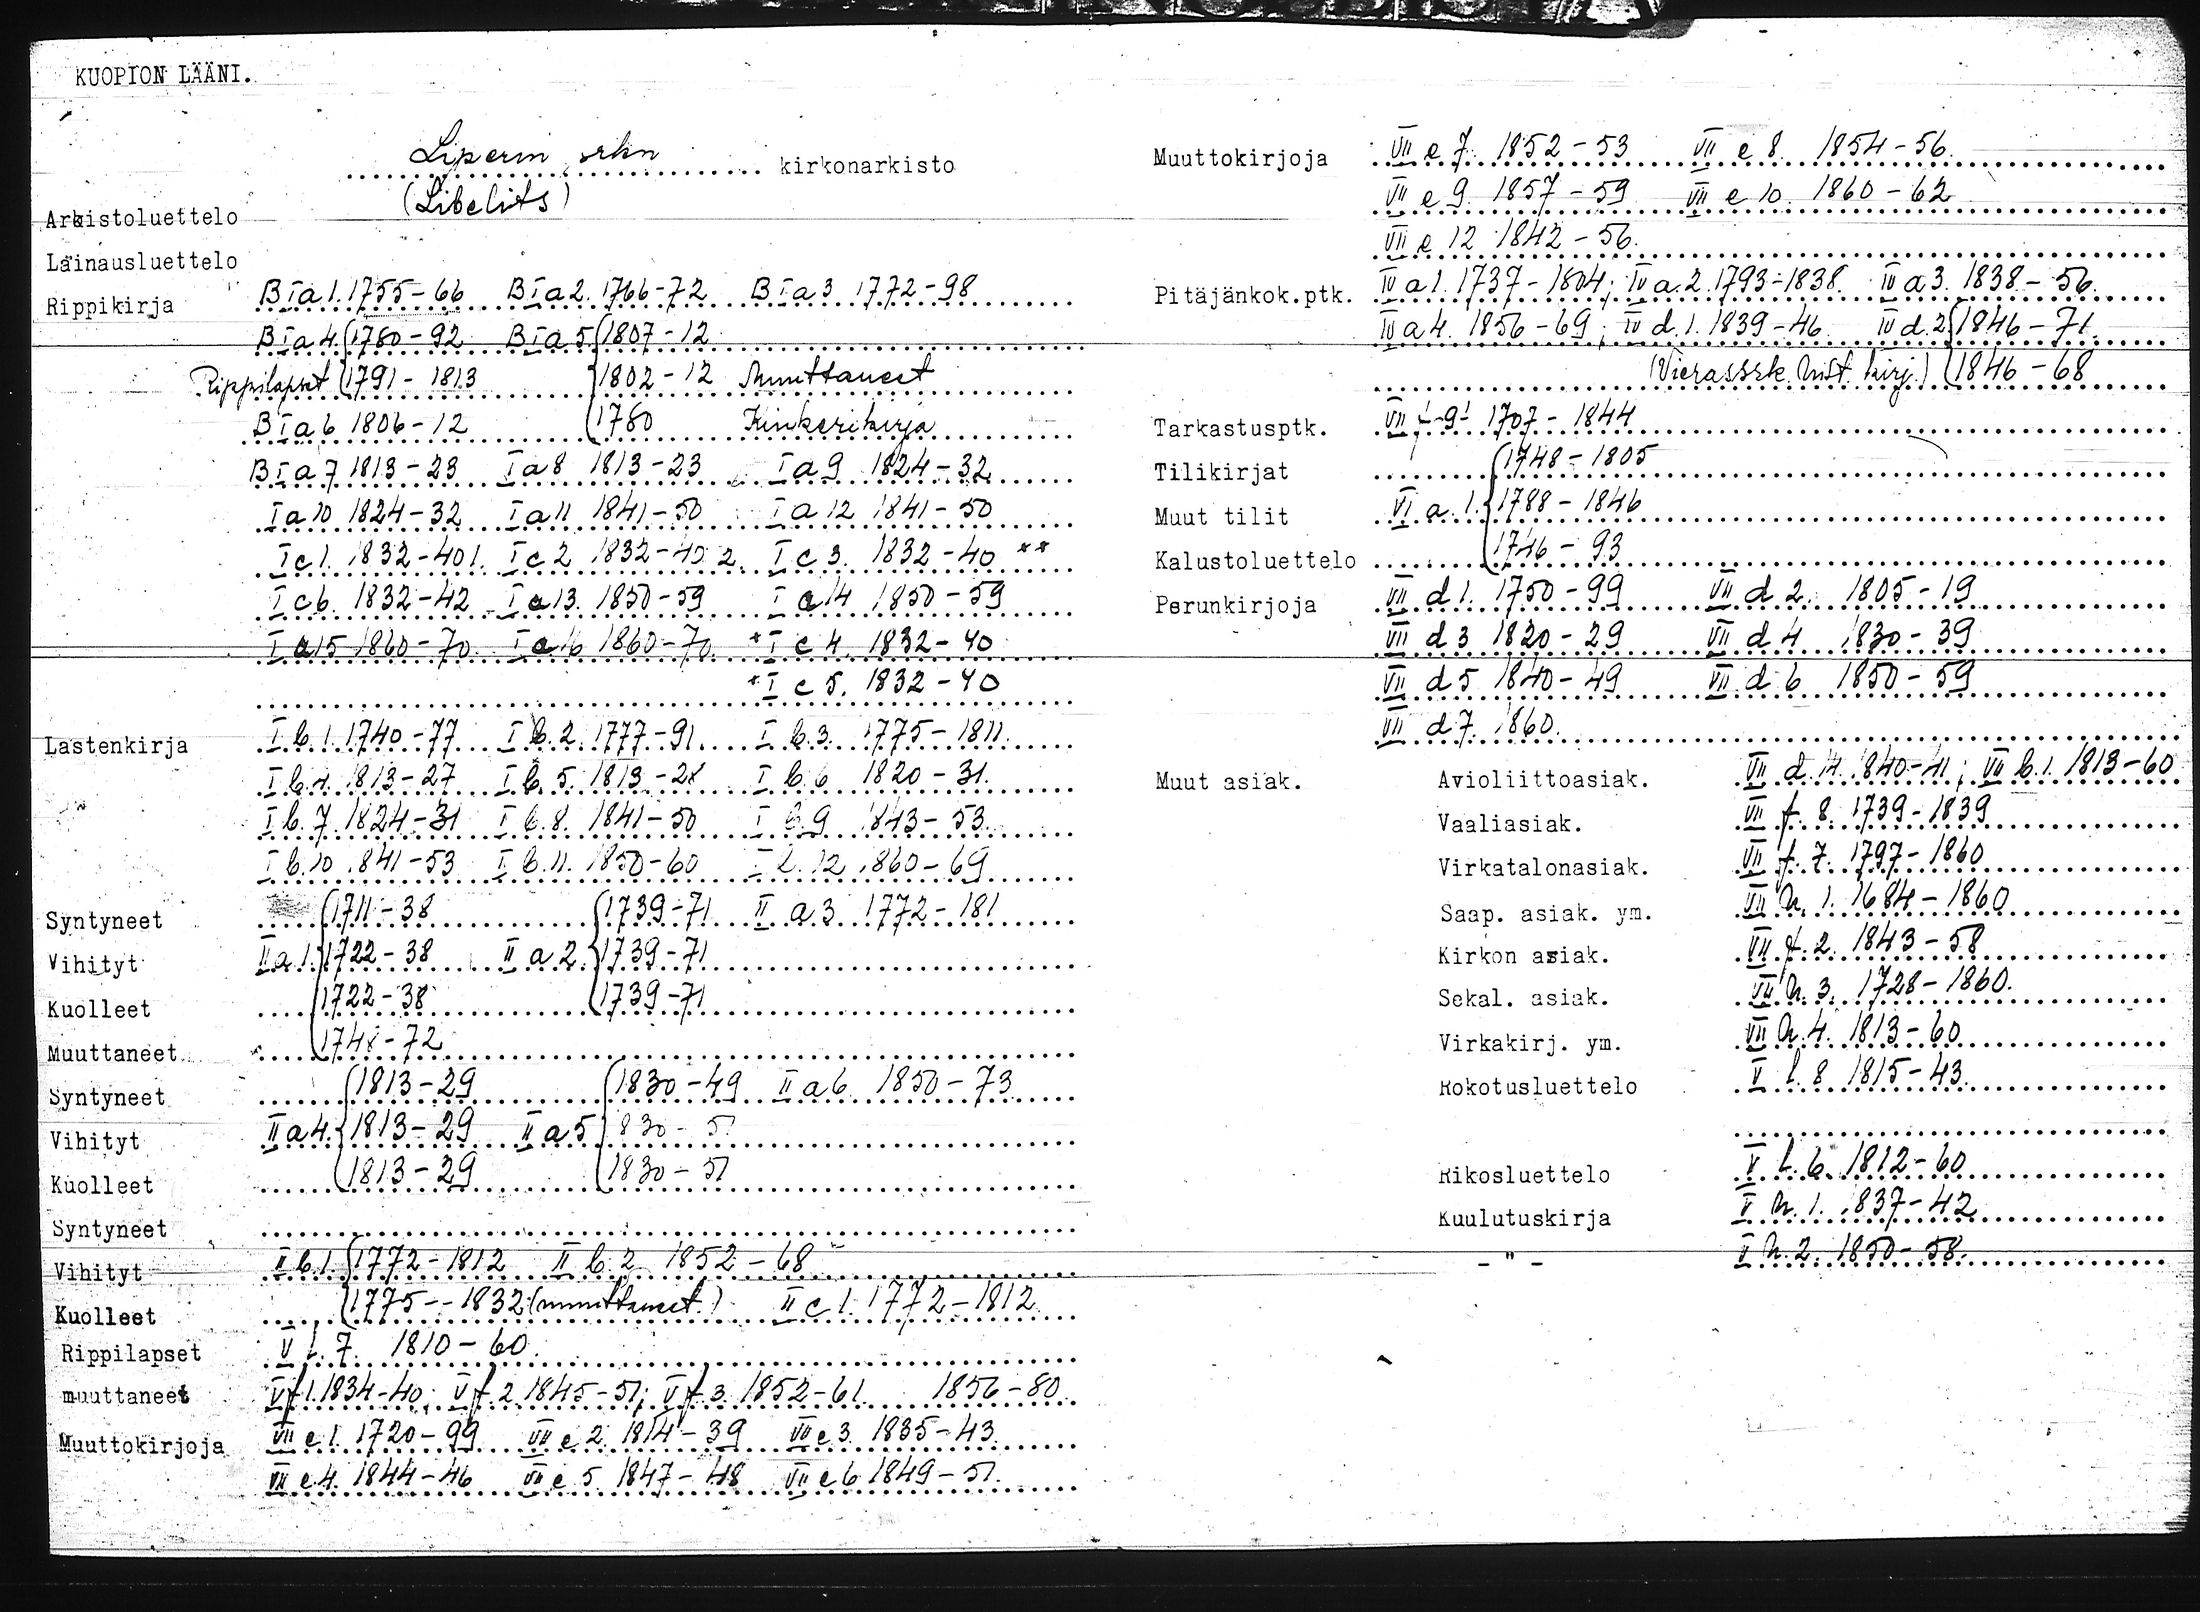 KUOPION LÄÄNI.
Liperin srkn kirkonarkisto
(Libelits)
Arkistoluettelo
Lainausluettelo
Rippikirja B I a 1. 1755-66 B I a 2. 1766-72 B I a 3 1772-98
B I a 4. 1780-92 B I a 5 1807-12
Rippilapset 1791-1813 1802-12 Muuttaneet
B I a 6 1806-12 1780 Kinkerikirja
B I a 7 1813-23 I a 8 1813-23 I a 9 1824-32
I a 10 1824-32 I a 11 1841-50 I a 12 1841-50
I c 1. 1832-40 1. I c 2 1832-40 2. I c 3. 1832-40 **
I c 6. 1832-42 I a 13. 1850-59 I a 14 1850-59
I a 15 1860-70 I a 16 1860-70 * I c 4. 1832-40
* I c 5. 1832-40
Lastenkirja I b. 1. 1740-77 I b. 2. 1777-91 I b. 3. 1775-1811.
I b. 4. 1813-27 I b. 5. 1813-28 I b. 6 1820-31.
I b. 7. 1824-31 I b. 8. 1841-50 I b. 9 1843-53.
I b. 10 1841-53 I b. 11. 1850-60 I b. 12 1860-69
Syntyneet 1711-38 1739-71 II a 3. 1772-181
Vihityt II a 1. 1722-38 II a 2. 1739-71
Kuolleet 1722-38 1739-71
Muuttaneet 1748-72
Syntyneet 1813-29 1830-49 II a 6. 1850-73
Vihityt II a 4. 1813-29 II a 5 830-51
Kuolleet 1813-29 1830-51
Syntyneet
Vihityt II b. 1. 1772-1812 II b. 2 1852-68
Kuolleet 1775--1832 (muuttaneet.) II c 1. 1772-1812
Rippilapset V 7. 1810-60.
muuttaneet V f 1. 1834-40; V f. 2 1845-51; V f. 3. 1852-61 1856-80
Muuttokirjoja VII e 1. 1720-99 VII e 2 1814-39 VII e 3. 1835-43.
VII e 4. 1844-46 VII e 5 1847-48 VII e 6 1849-51.
Muuttokirjoja VII e 7. 1852-53 VII e 8. 1854-56.
VII e 9. 1857-59 VII e 10. 1860-62
VII e 12 1842-56.
Pitäjänkok.ptk. IV a 1. 1737-1804; IV a. 2. 1793-1838. IV a 3. 1838-56.
IV a 4. 1856-69; IV d. 1. 1839-46. IV d. 2 1846-71.
(Vierassrk. hist. kirj.) 1846-68
Tarkastusptk. VII 9 1707-1844
Tilikirjat 1748-1805
Muut tilit VI a. 1. 1788-1846
Kalustoluettelo 1746-93
Perunkirjoja VII d 1. 1750-99 VII d 2. 1805-19
VII d 3 1820-29 VII d 4 1830-39
VII d 5 1840-49 VII d 6 1850-59
VII d 7. 1860.
Muut asiak. Avioliittoasiak. VII d. 14. 1840-41; VII b. 1. 1813-60
Vaaliasiak. VII f. 8. 1739-1839
Virkatalonasiak. VII f. 7. 1797-1860
Saap. asiak. ym. VII h. 1. 1684-1860
Kirkon asiak. VII f. 2. 1843-58
Sekal. asiak. VII h. 3. 1728-1860.
Virkakirj. ym. VII h. 4. 1813-60
Rokotusluettelo V l. 8 1815-43.
Rikosluettelo V l. 6. 1812-60
Kuulutuskirja V h. 1. 1837-42
- " - V h. 2. 1850-58.